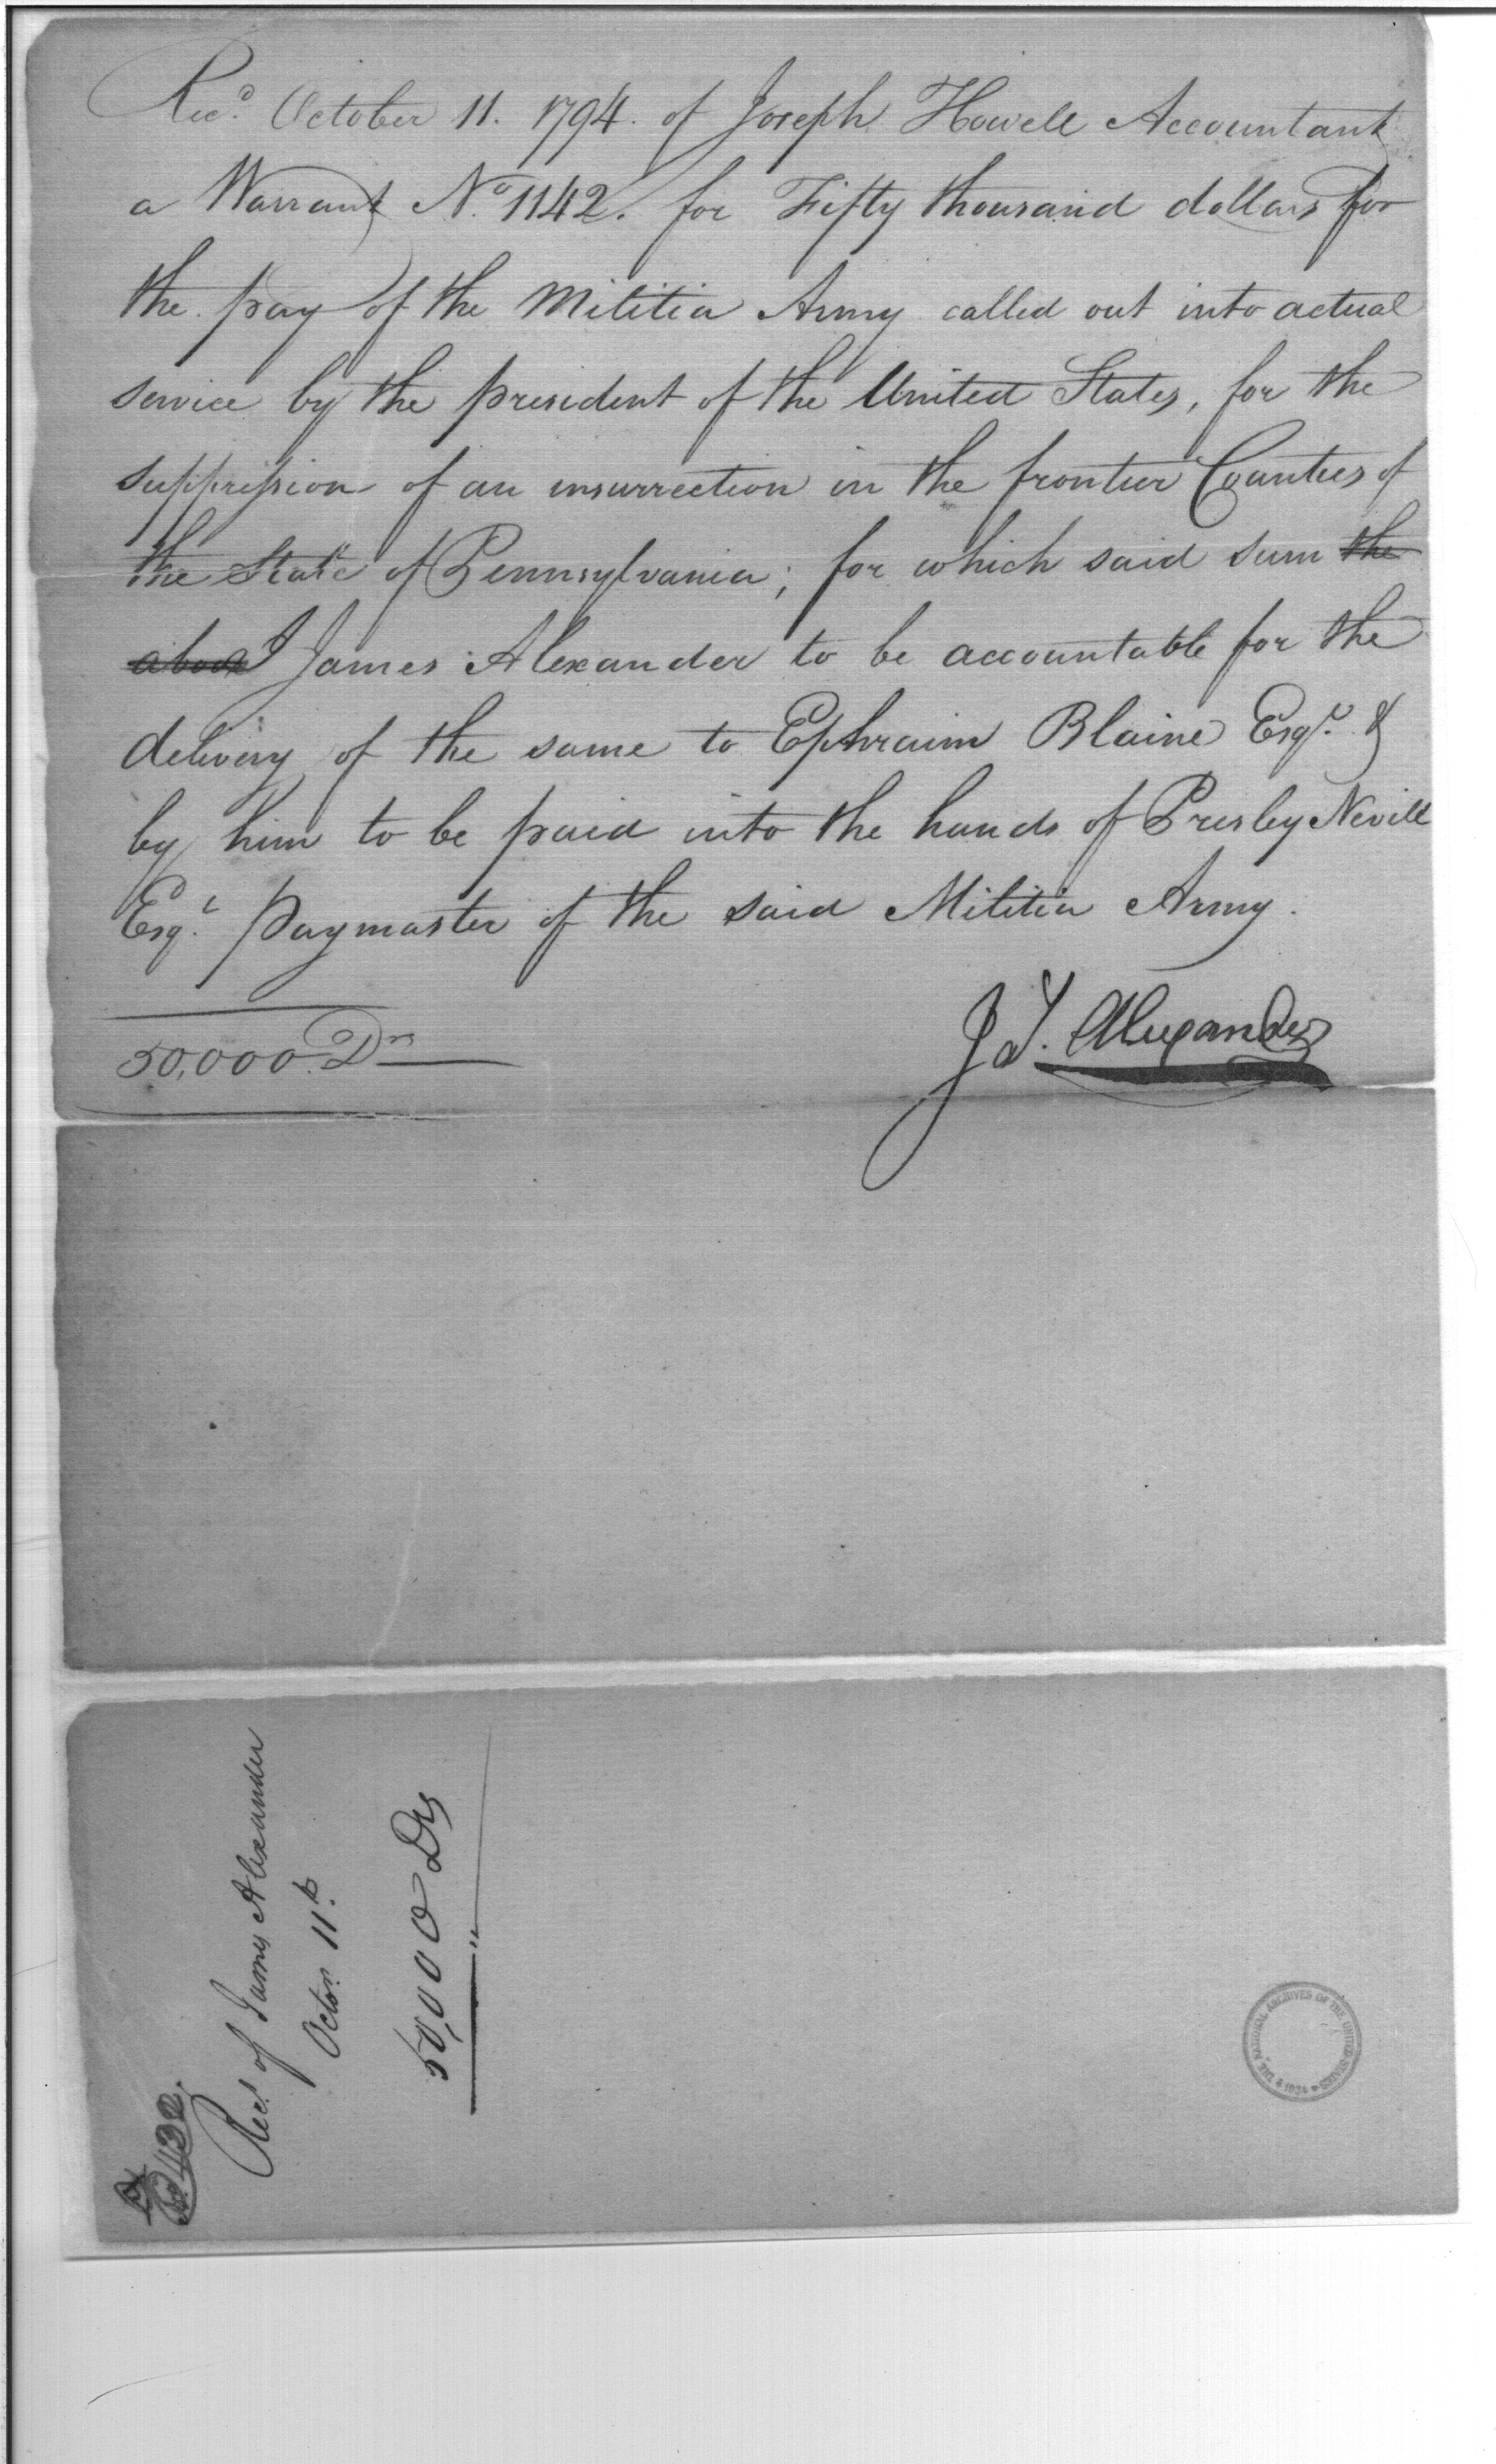 Rec.d October 11. 1794. of Joseph Howell Accountant
a Warrant No. 1142. for Fifty thousand dollars for
the pay of the Militia Army called out into actual
service by the president of the United States, for the
suppression of an insurrection in the frontier Counties of
the State of Pennsylvania; for which said sum the
above I James Alexander to be accountable for the
delivery of the same to Ephraim Blaine Esqr. &
by him to be paid into the hands of Presley Nevill
Esqr. Paymaster of the said Militia Army.
50,000 Drs
J. Alexander
432.
Rect. of James Alexander
Octor. 11th
50,000 Drs
THE NATIONAL ARCHIVES OF THE UNITED STATES
1934